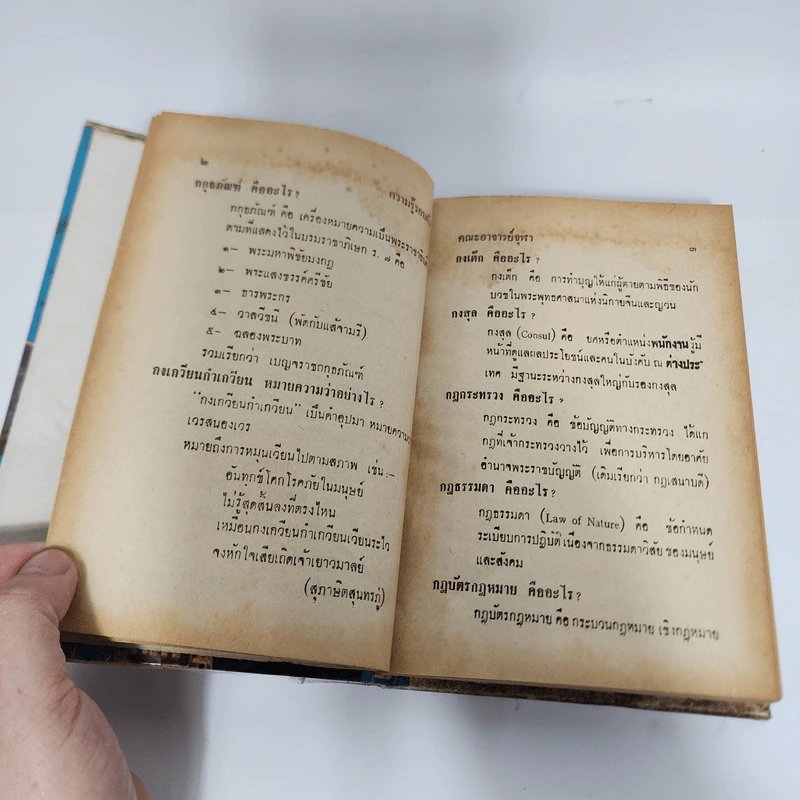 ๒
ความรู้รอบตัว
กกุธภัณฑ์ คืออะไร ?
กกุธภัณฑ์ คือ เครื่องหมายความเป็นพระราชาธิบดี
ตามที่แสดงไว้ในบรมราชาภิเษก ร. ๗ คือ
๑– พระมหาพิชัยมงกุฎ
๒– พระแสงขรรค์ศรีชัย
๓– ธารพระกร
๔– วาลวีชนี (พัดกับแส้จามรี)
๕– ฉลองพระบาท
รวมเรียกว่า เบญจราชกกุธภัณฑ์
กงเกวียนกำเกวียน หมายความว่าอย่างไร ?
"กงเกวียนกำเกวียน" เป็นคำอุปมา หมายความว่า
เวรสนองเวร
หมายถึงการหมุนเวียนไปตามสภาพ เช่น:–
อันทุกข์โศกโรคภัยในมนุษย์
ไม่รู้สุดสิ้นลงที่ตรงไหน
เหมือนกงเกวียนกำเกวียนเวียนระไว
จงหักใจเสียเถิดเจ้าเยาวมาลย์
(สุภาษิตสุนทรภู่)
คณะอาจารย์จุฬา
๓
กงเต๊ก คืออะไร ?
กงเต๊ก คือ การทำบุญให้แก่ผู้ตายตามพิธีของนัก
บวชในพระพุทธศาสนาแห่งนิกายจีนและญวน
กงสุล คืออะไร ?
กงสุล (Consul) คือ ยศหรือตำแหน่งพนักงานผู้มี
หน้าที่ดูแลผลประโยชน์และคนในบังคับ ณ ต่างประ
เทศ มีฐานะระหว่างกงสุลใหญ่กับรองกงสุล
กฎกระทรวง คืออะไร ?
กฎกระทรวง คือ ข้อบัญญัติทางกระทรวง ได้แก่
กฎที่เจ้ากระทรวงวางไว้ เพื่อการบริหารโดยอาศัย
อำนาจพระราชบัญญัติ (เดิมเรียกว่า กฎเสนาบดี)
กฎธรรมดา คืออะไร ?
กฎธรรมดา (Law of Nature) คือ ข้อกำหนด
ระเบียบการปฏิบัติเนื่องจากธรรมดาวิสัย ของมนุษย์
และสังคม
กฎบัตรกฎหมาย คืออะไร ?
กฎบัตรกฎหมาย คือ กระบวนกฎหมาย เชิงกฎหมาย